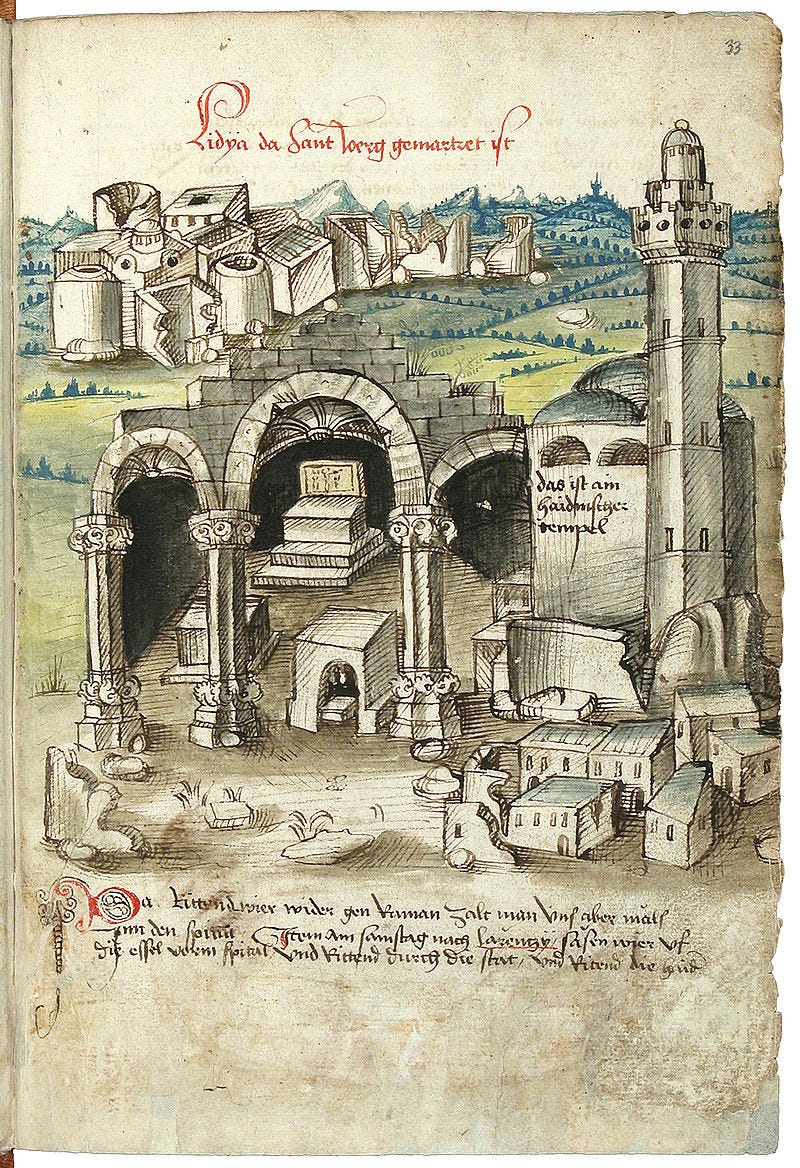 33
Lidya da Sant Joerg gemartret ist
das ist am
haidnischer
tempel
Da Rittend wier wider gen Raman Zalt man vns aber mals
Inn den spittal Item am samstag nach larentzy sasen wier vf
die essel vorm spital vnd Rittend durch die stat vnd Ritend die